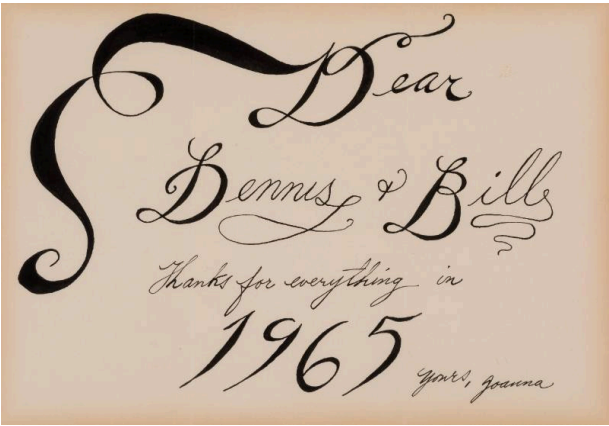 Dear
Dennis & Bill
Thanks for everything in
1965
yours, Joanna